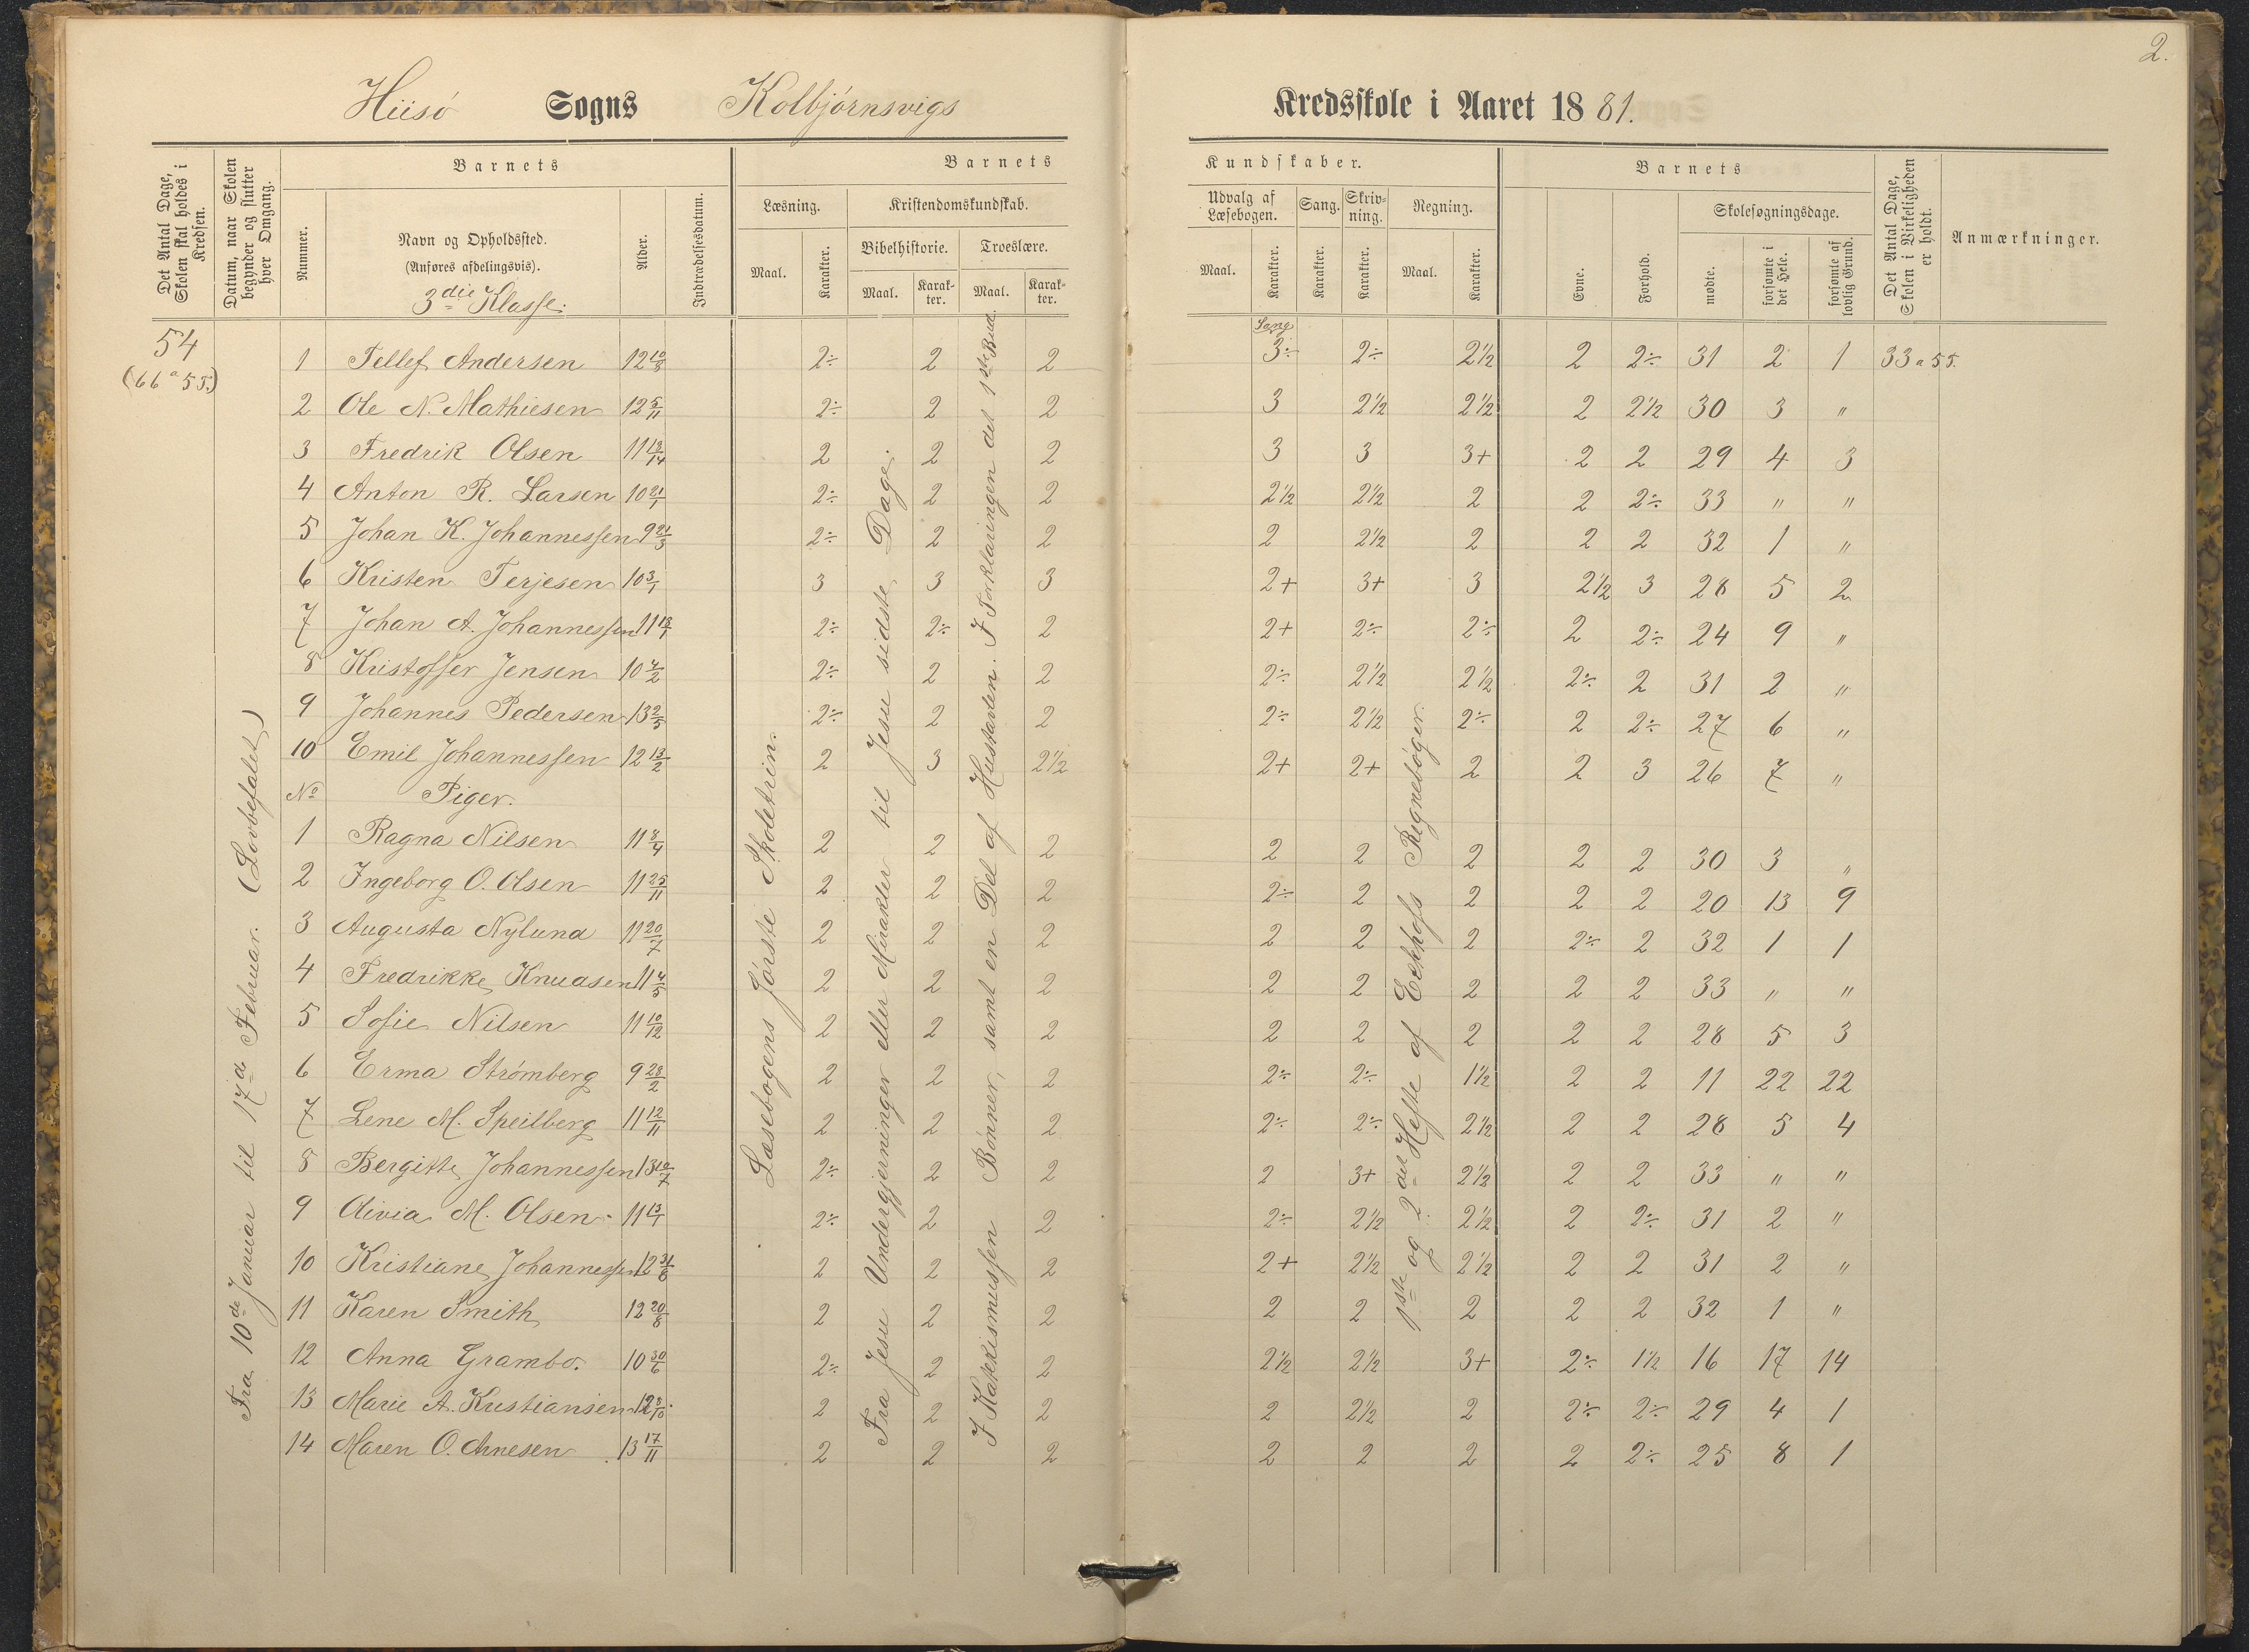 2.
Hiisö Sogns Kolbjörnsvigs Kredsskole i Aaret 1881.
Det Antal Dage, Skolen skal holdes i Kredsen.
Datum, naar Skolen begynder og slutter hver Omgang.
Barnets
Nummer.
Navn og Opholdssted.
(Anføres afdelingsvis).
3die Klasse:
Alder.
Indtrædelsesdatum.
Barnets Kundskaber.
Læsning.
Maal. Karakter.
Kristendomskundskab.
Bibelhistorie. Troeslære.
Maal. Karakter. Maal. Karakter.
Udvalg af Læsebogen. Sang. Skrivning. Regning.
Maal. Karakter. Karakter. Karakter. Maal. Karakter.
Barnets
Evne. Forhold.
Skolesøgningsdage.
mødte. forsømte i det Hele. forsømte af lovlig Grund.
Det Antal Dage, Skolen i Virkeligheden er holdt.
Anmærkninger.
54
(66 a 55.)
Fra 10de Januar til 17de Februar. (Lovbefalet)
Læsebogens første Skoletrin.
Fra Jesu Undergjerninger eller Mirakler til Jesu sidste Dage.
I Katekismussen Bønner, samt en Del af Hustavlen. I Forklaringen del 1ste Bud.
1ste og 2det Hefte af Eckhofs Regnebøger.
Sang
1 Tellef Andersen 12 10/8 2÷ 2 2 3÷ 2÷ 2½ 2 2÷ 31 2 1 33 a 55.
2 Ole N. Mathiesen 12 5/11 2÷ 2 2 3 2½ 2½ 2 2½ 30 3 "
3 Fredrik Olsen 11 2 2 2 3 3 3+ 2 2 29 4 3
4 Anton R. Larsen 10 21/1 2÷ 2 2 2½ 2½ 2 2 2÷ 33 " "
5 Johan K. Johannessen 9 21/3 2÷ 2 2 2 2½ 2 2 2 32 1 "
6 Kristen Terjesen 10 3/1 3 3 3 2+ 3+ 3 2½ 3 28 5 2
7 Johan A. Johannessen 11 13/1 2÷ 2÷ 2 2+ 2÷ 2÷ 2 2÷ 24 9 "
8 Kristoffer Jensen 10 4/2 2÷ 2 2 2÷ 2½ 2½ 2÷ 2 31 2 "
9 Johannes Pedersen 13 2/5 2÷ 2 2 2÷ 2½ 2÷ 2 2÷ 27 6 "
10 Emil Johannessen 12 13/2 2 3 2½ 2+ 2+ 2 2 3 26 7 "
No Piger.
1 Ragna Nilsen 11 8/4 2 2 2 2 2 2 2 2 30 3 "
2 Ingeborg O. Olsen 11 25/11 2 2 2 2÷ 2 2 2 2 20 13 9
3 Augusta Nylund 11 20/7 2 2 2 2 2 2 2÷ 2 32 1 1
4 Fredrikke Knudsen 11 4/5 2 2 2 2 2 2 2 2 33 " "
5 Sofie Nilsen 11 10/12 2 2 2 2 2 2 2 2 28 5 3
6 Erma Strömberg 9 28/2 2 2 2 2÷ 2÷ 1½ 2 2 11 22 22
7 Lene M. Speilberg 11 12/11 2 2 2 2÷ 2÷ 2½ 2 2 28 5 4
8 Bergitte Johannessen 13 10/7 2÷ 2 2 2 3+ 2½ 2 2 33 " "
9 Olivia M. Olsen 11 13/1 2÷ 2 2 2÷ 2½ 2½ 2 2÷ 31 2 "
10 Kristiane Johannessen 12 31/8 2 2 2 2+ 2½ 2½ 2 2 31 2 "
11 Karen Smith 12 20/8 2 2 2 2 2 2 2 2 32 1 "
12 Anna Grambo. 10 30/6 2÷ 2 2 2½ 2½ 3+ 2÷ 1½ 16 17 14
13 Marie A. Kristiansen 12 8/10 2 2 2 2 2½ 2 2÷ 2÷ 29 4 1
14 Maren O. Arnesen 13 17/11 2 2 2 2 2 2 2 2÷ 25 8 1